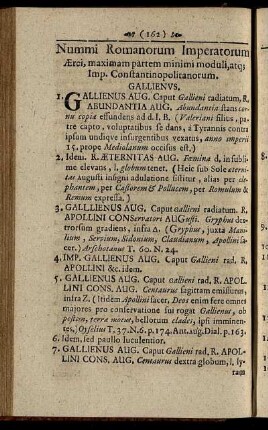 (162)
Nummi Romanorum Imperatorum
Ærei, maximam partem minimi moduli, atq;
Imp. Constantinopolitanorum.
GALLIENVS.
1. GALLIENUS AUG. Caput Gallieni radiatum, R.
ABUNDANTIA AUG. Abundantia stans cor-
nu copiæ effundens ad d. I. B. (Valeriani filius, pa-
tre capto, voluptatibus se dans, à Tyrannis contra
ipsum undique insurgentibus vexatus, anno imperii
15. prope Mediolanum occisus est.)
2. Idem. R. ÆTERNITAS AUG. Fœmina d. in subli-
me elevans, l. globum tenet. (Heic sub Sole æterni-
tas Augusti insigni adulatione sistitur, alias per ele-
phantem, per Castorem & Pollucem, per Romulum &
Remum expressa.)
3. GALLLIENUS AUG. Caput Gallieni radiatum. R.
APOLLINI CONServatori AUGusti. Gryphus dex-
trorsum gradiens, infra Δ. (Gryphus, juxta Mani-
lium, Servium, Sidonium, Claudianum, Apollini sa-
cer.) Arschotanus T. 60. N. 24.
4. IMP. GALLIENUS AUG. Caput Gallieni rad. R.
APOLLINI &c. idem.
5. GALLIENUS AUG. Caput Gallieni rad, R. APOL-
LINI CONS. AUG. Centaurus sagittam emissurus,
infra Z. (Itidem Apollini sacer, Deos enim fere omnes
majores pro conservatione sui rogat Gallienus, ob
pestem, terræ motus, bellorum clades, ipsi imminen-
tes,) Oyselius T. 37. N. 6. p. 174. Ant. aug. Dial. p. 163.
6. Idem, sed paullo luculentior.
7. GALLIENUS AUG. Caput Gallieni rad, R. APOL-
LINI CONS. AUG. Centaurus dextra globum, l. ly-
ram